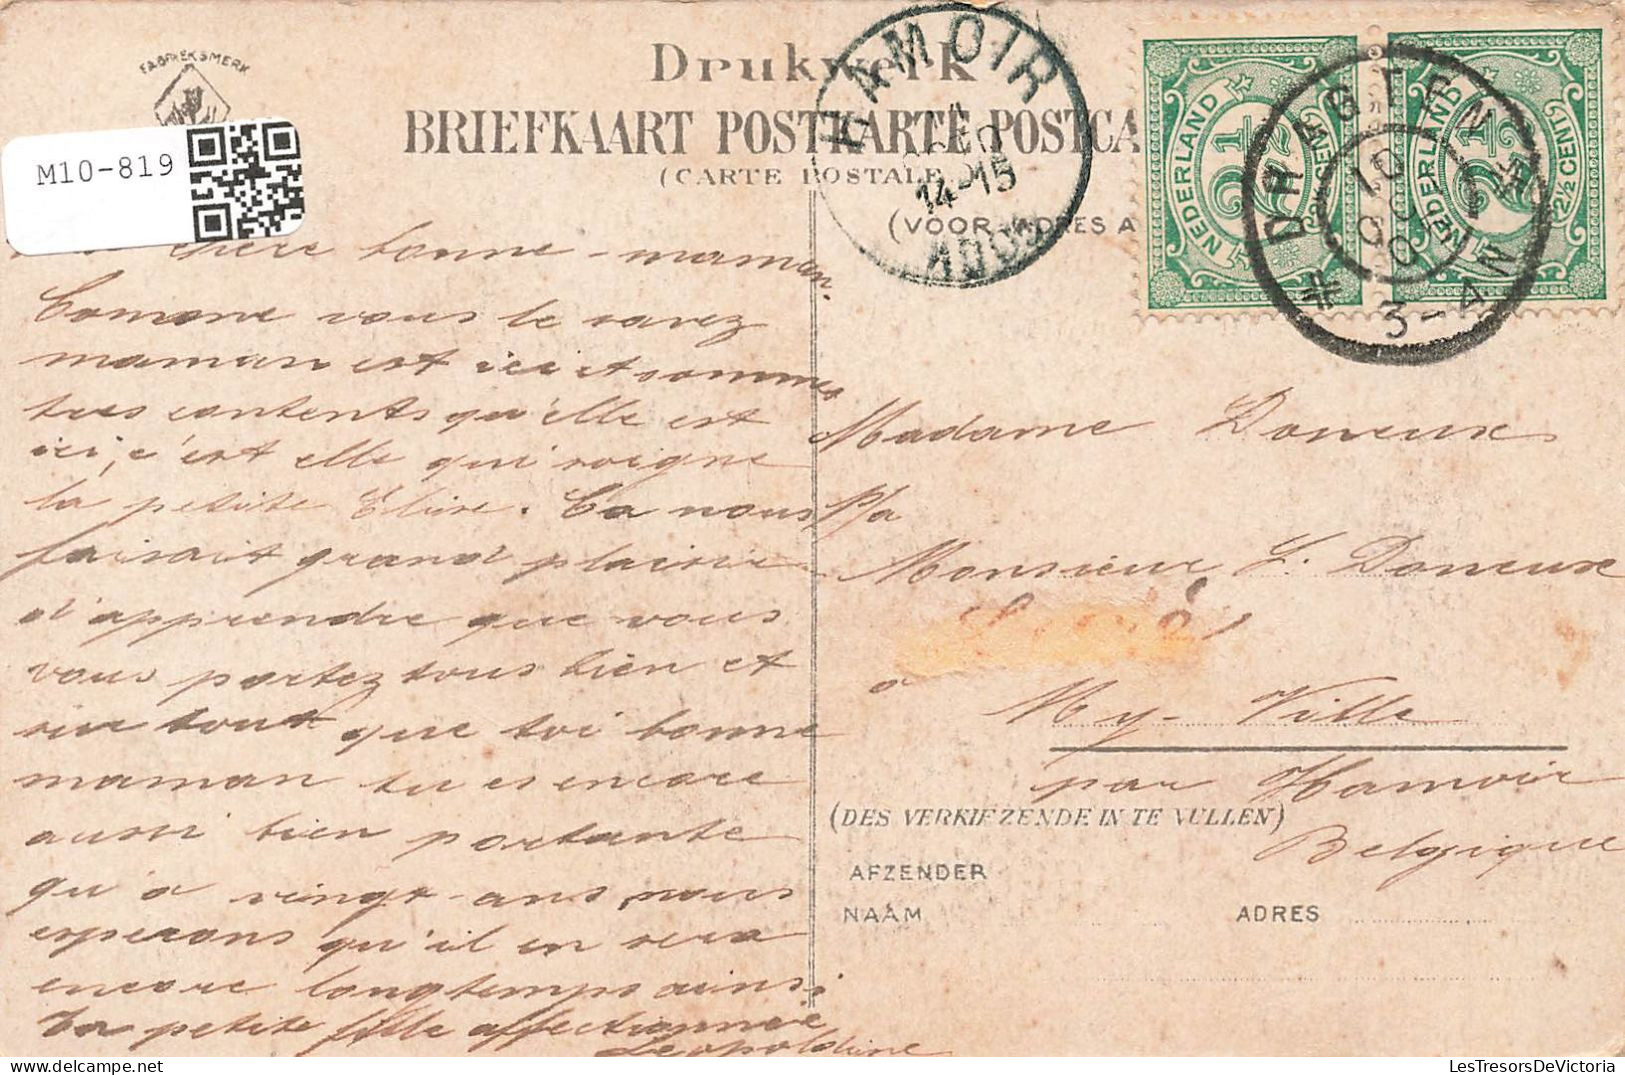 FABRIEKSMERK
Drukwerk
BRIEFKAART POSTKARTE POSTCA
(CARTE POSTALE
(VOOR ADRES A
M10-819
HAMOIR
14-15
NEDERLAND 2½ CENT (2½ CENT)
NEDERLAND 2½ CENT (2½ CENT)
3-4 N
chère bonne-maman.
Comme vous le savez
maman est ici et sommes
tres contents qu'elle est
ici, c'est elle qui soigne
la petite Elise. Ca nous
faisait grand plaisir
d'apprendre que vous
vous portez tous bien et
surtout que toi bonne
maman tu es encore
aussi bien portante
qu'a vingt-ans, nous
esperons qu'il en sera
encore longtemps ainsi
Ta petite fille affectionnée
Leopoldine
Madame Doneux
P/a
Monsieur L. Doneux
à
My-Ville
par Hamoir
Belgique
(DES VERKIEZENDE IN TE VULLEN)
AFZENDER
NAAM ADRES
LesTresorsDeVictoria